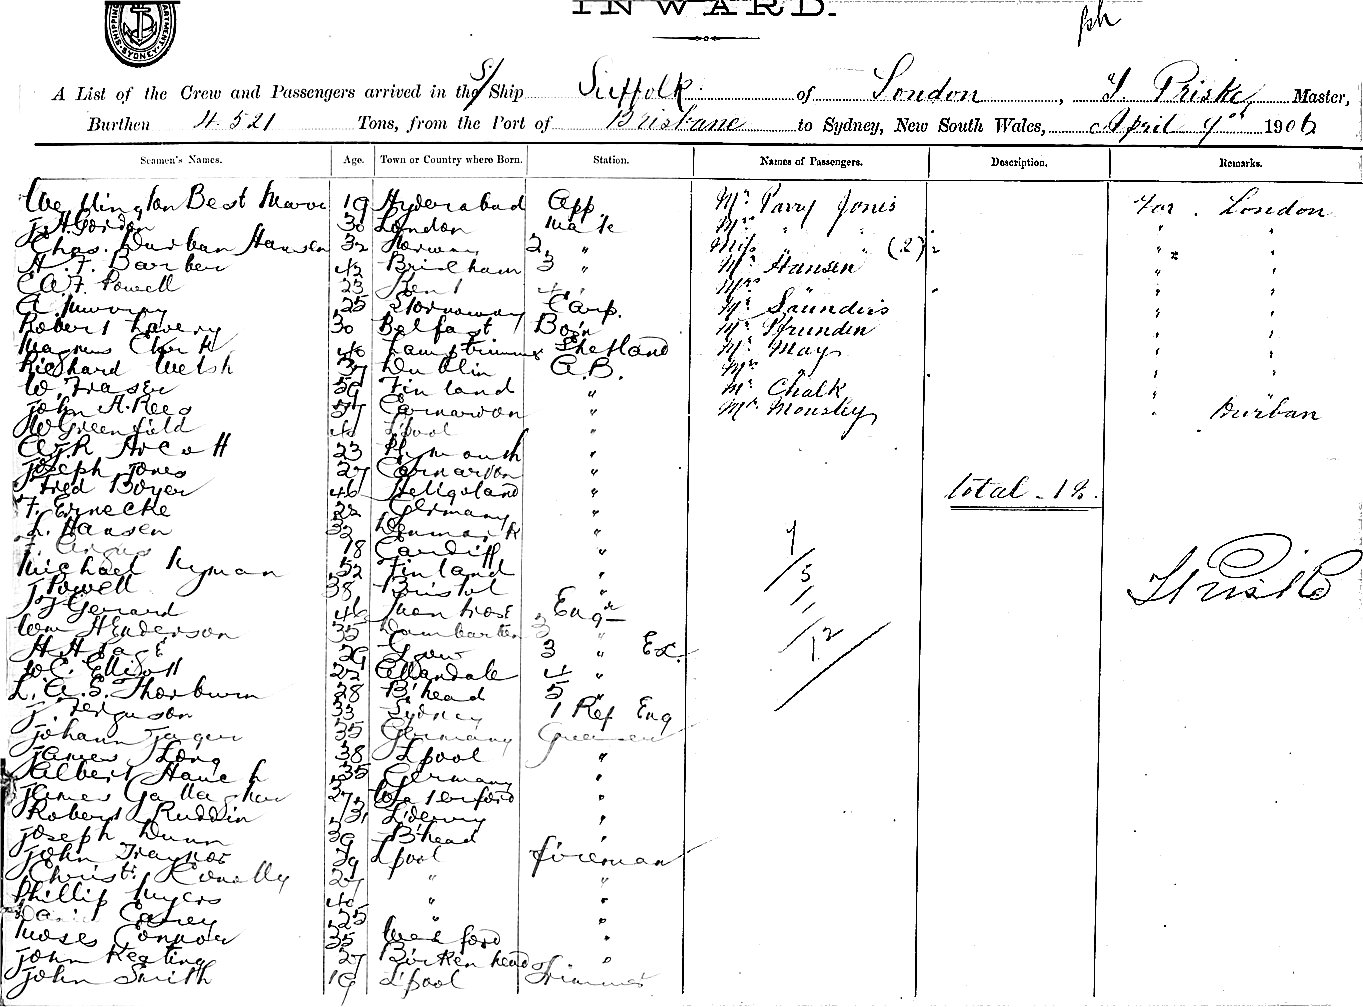 INWARD.
SHIPPING DEPARTMENT SYDNEY
A List of the Crew and Passengers arrived in the S/ Ship Suffolk of London, J. Priske Master,
Burthen 4521 Tons, from the Port of Brisbane to Sydney, New South Wales, April 1906
Seamen's Names. Age. Town or Country where Born. Station. Names of Passengers. Description. Remarks.
Wellington Best 19 Hyderabad App. Mr Parry Jones For London
J. H. Gordon 30 London Mate Mrs " " " "
Chas. Durban Hansen 32 Norway 2 " Miss " " (2) " "
H. F. Barber 42 Brixham 3 " Mr Hansen " "
C A F Powell 23 Kent 4 " Mrs " " "
A. Murray 25 Stornoway Carp. Mr Saunders " "
Robert Lavery 30 Belfast Bo'n Mr " "
Magnus 40 Shetland Mr May " "
Richard Welsh 37 Dublin A.B. Mrs " " "
W. Fraser 59 Finland " Mr Chalk " "
John A. Rees 57 Carnarvon " Mr Mousley " Durban
W Greenfield L'pool "
Arcott 23 Plymouth "
Joseph Jones 27 Carnarvon "
Fred Boyer 46 Heligoland " total - 12.
F. Ernecke 22 Germany "
L. Hansen 32 Denmark "
Angus 18 Cardiff " 7
Michael Nyman 52 Finland " 5
J Powell 38 Bristol " J Priske
J J Gerrard 46 Engr
Wm Henderson 35 Dumbarton " 12
H H Page 29 3 " Ex.
W. C. Elliott 22 Allandale 4 "
L. A. S. Thorburn 28 B'head 5 "
J. Ferguson 33 Sydney 1 Ref Eng
Johann Jager 35 Germany Greaser
James Long 38 L'pool "
Albert Hauch 35 Germany "
James Gallagher 27 Waterford "
Robert Ruddin L'derry "
Joseph Dunn 39 B'head "
John Traynor 39 L'pool fireman
Christ. Conolly 27 " "
Phillip Myers 40 " "
Daniel 25 " "
Moses Connor 35 Wexford "
John Keating 27 Birkenhead "
John Smith 19 L'pool Trimmer